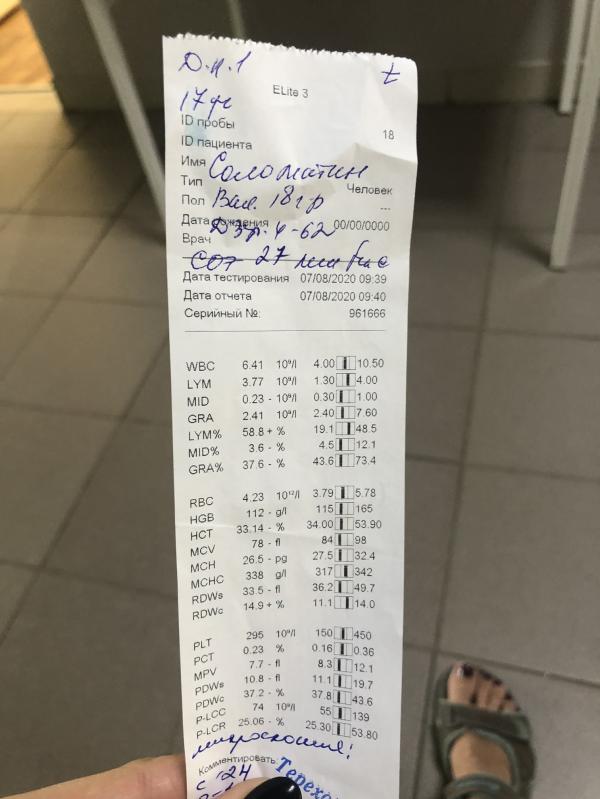 Д.п.1
ELite 3
ID пробы 18
ID пациента
Имя Соломатин
Тип Человек
Пол 18 гр ---
Дата рождения 00/00/0000
Врач
СОЭ 27 мм
Дата тестирования 07/08/2020 09:39
Дата отчета 07/08/2020 09:40
Серийный №: 961666
WBC 6.41 10⁹/l 4.00 10.50
LYM 3.77 10⁹/l 1.30 4.00
MID 0.23 - 10⁹/l 0.30 1.00
GRA 2.41 10⁹/l 2.40 7.60
LYM% 58.8 + % 19.1 48.5
MID% 3.6 - % 4.5 12.1
GRA% 37.6 - % 43.6 73.4
RBC 4.23 10¹²/l 3.79 5.78
HGB 112 - g/l 115 165
HCT 33.14 - % 34.00 53.90
MCV 78 - fl 84 98
MCH 26.5 - pg 27.5 32.4
MCHC 338 g/l 317 342
RDWs 33.5 - fl 36.2 49.7
RDWc 14.9 + % 11.1 14.0
PLT 295 10⁹/l 150 450
PCT 0.23 % 0.16 0.36
MPV 7.7 - fl 8.3 12.1
PDWs 10.8 - fl 11.1 19.7
PDWc 37.2 - % 37.8 43.6
P-LCC 74 10⁹/l 55 139
P-LCR 25.06 - % 25.30 53.80
микроскопия!
Комментировать: